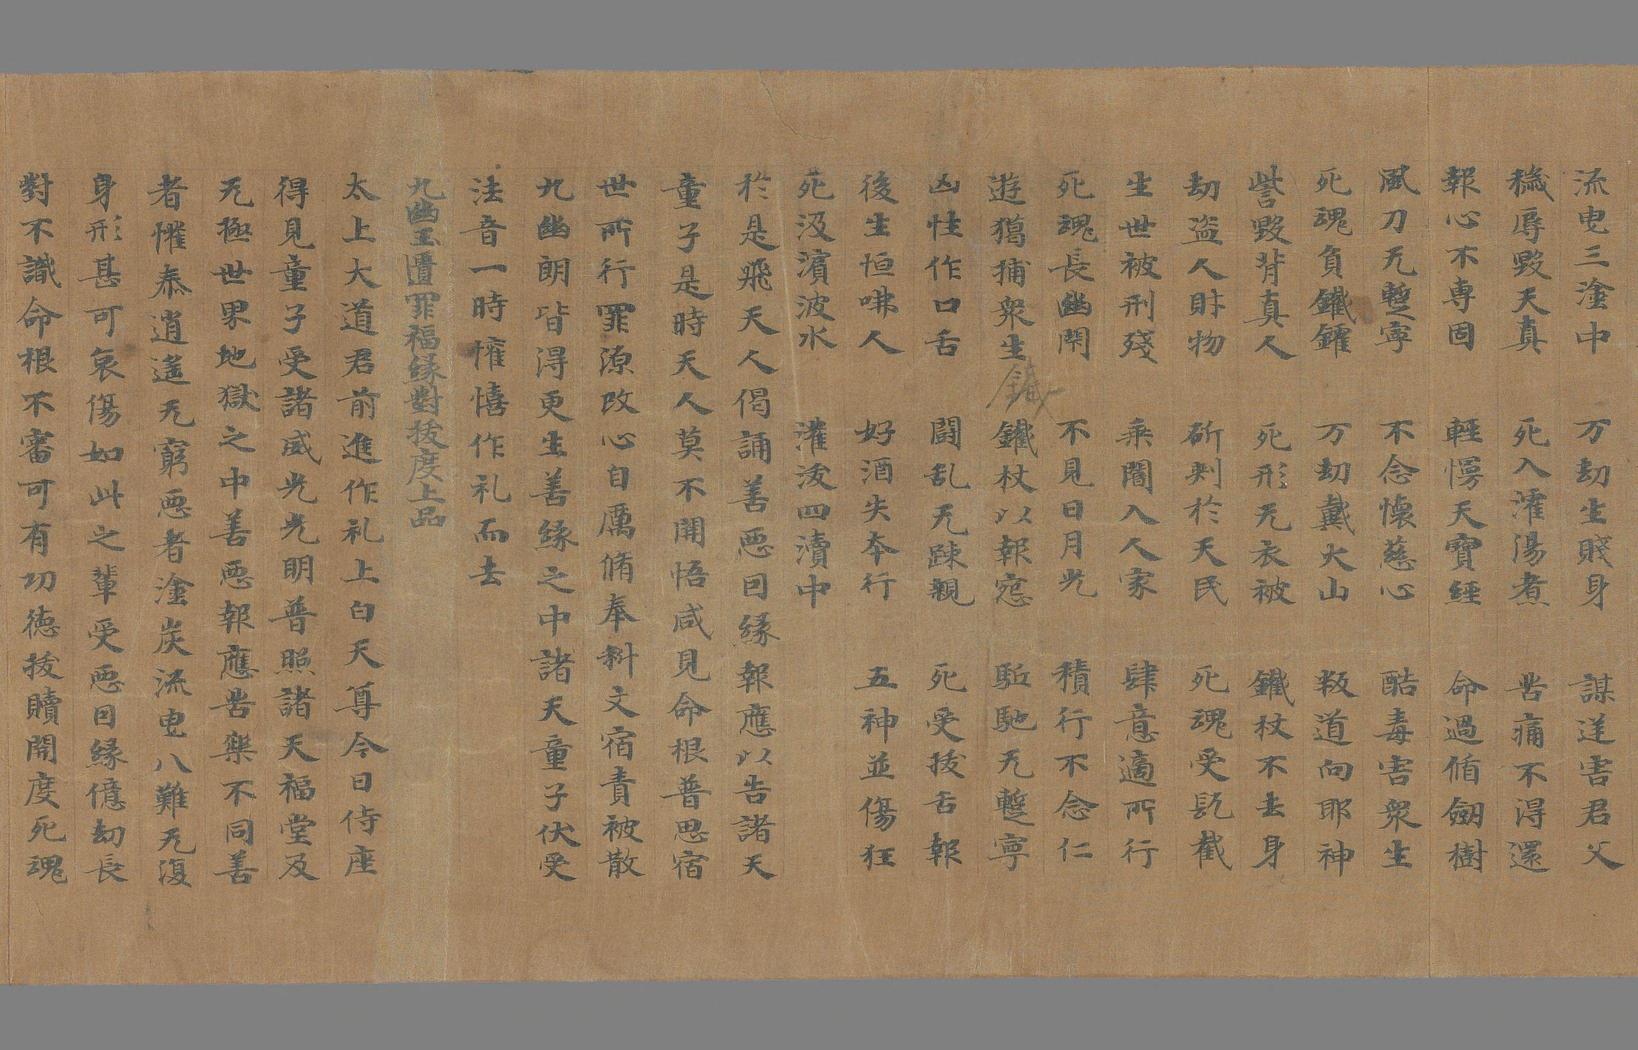 流曳三塗中 万劫生賤身 謀逆害君父
穢辱毀天真 死入濩湯煮 苦痛不得還
報心不専固 輕慢天寶經 命過循劔樹
風刀无蹔寧 不念懐慈心 酷毒害衆生
死魂負鐵鑵 万劫戴火山 叛道向耶神
訾毀背真人 死形无衣被 鐵杖不去身
劫盜人財物 斫剌於天民 死魂受髡截
生世被刑殘 乗闇入人家 肆意適所行
死魂長幽閇 不見日月光 積行不念仁
遊獵捕衆生 鐵杖以報㤪 馳无蹔寧
凶性作口舌 闘乱无踈親 死受拔舌報
後生恒咈人 好酒失夲行 五神並傷狂
死汲濱波水 灌浚四瀆中
於是飛天人偈誦善悪因緣報應以告諸天
童子是時天人莫不開悟咸見命根普思宿
世所行罪源改心自厲脩奉科文宿責被散
九幽朗皆得更生善緣之中諸天童子伏受
法音一時懽憘作礼而去
九幽玉匱罪福緣對拔度上品
太上大道君前進作礼上白天尊今日侍座
得見童子受諸威光光明普照諸天福堂及
无極世界地獄之中善悪報應苦樂不同善
者懽泰逍遥无窮悪者塗炭流曳八難无復
身形甚可哀傷如此之輩受悪因緣億劫長
對不識命根不審可有功徳拔贖開度死魂